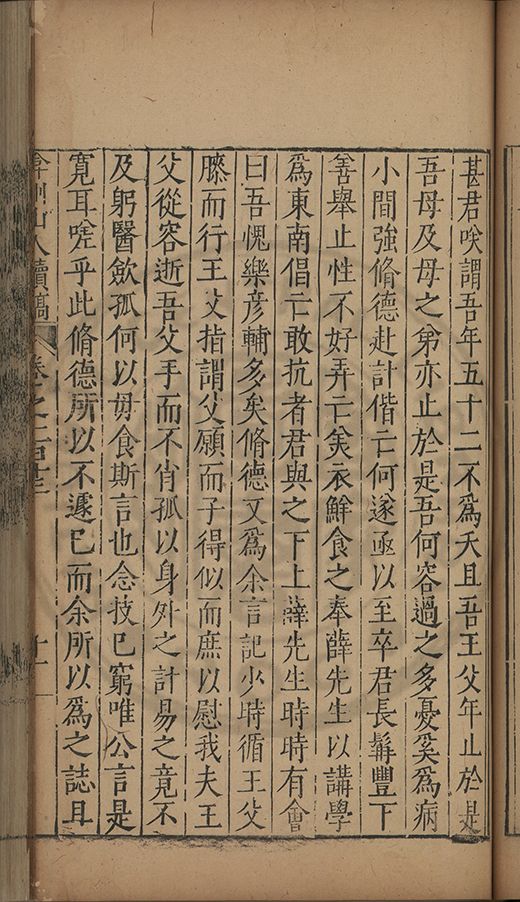 甚君唉謂吾年五十二不爲夭且吾王父年止於是
吾母及母之弟亦止於是吾何容過之多憂奚爲病
小間強脩德赴計偕亡何遂亟以至卒君長髯豐下
善舉止性不好弄亡美衣鮮食之奉薛先生以講學
爲東南倡亡敢抗者君與之下上薛先生時時有會
曰吾愧樂彦輔多矣脩德又爲余言記少時循王父
膝而行王父指謂父願而子得似而庶以慰我夫王
父從容逝吾父手而不肖孤以身外之計易之竟不
及躬醫歛孤何以毋食斯言也念技已窮唯公言是
寛耳嗟乎此脩德所以不遽已而余所以爲之誌且
弇州山人續稿 卷之一百十二 十一